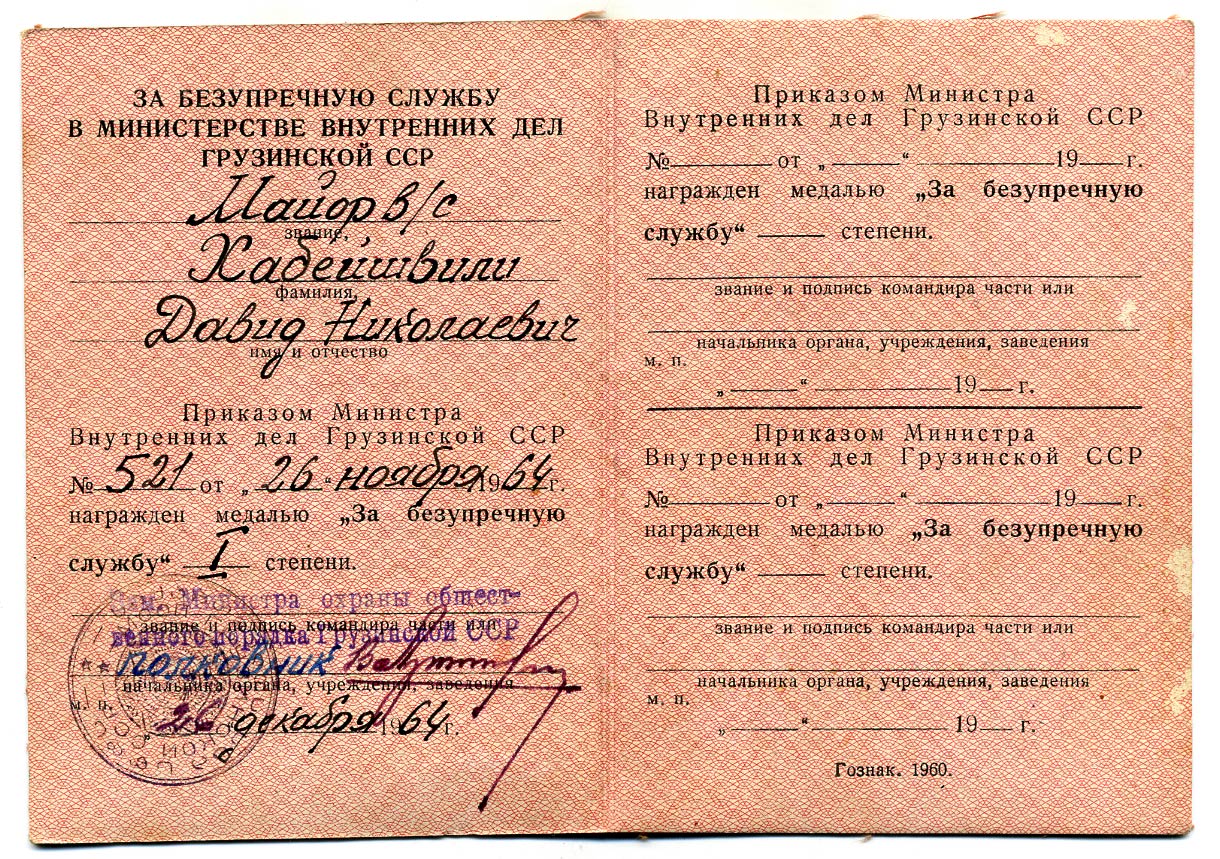 ЗА БЕЗУПРЕЧНУЮ СЛУЖБУ
В МИНИСТЕРСТВЕ ВНУТРЕННИХ ДЕЛ
ГРУЗИНСКОЙ ССР
Майор в/с
звание,
Хабейшвили
фамилия,
Давид Николаевич
имя и отчество
Приказом Министра
Внутренних дел Грузинской ССР
№ 521 от „ 26 “ ноября 1964 г.
награжден медалью „За безупречную
службу“ I степени.
Зам. Министра охраны общест-
звание и подпись командира части или
венного порядка Грузинской ССР
полковник
начальника органа, учреждения, заведения
м. п.
„ 26 “ декабря 1964 г.
Приказом Министра
Внутренних дел Грузинской ССР
№ от „ “ 19 г.
награжден медалью „За безупречную
службу“ степени.
звание и подпись командира части или
начальника органа, учреждения, заведения
м. п.
„ “ 19 г.
Приказом Министра
Внутренних дел Грузинской ССР
№ от „ “ 19 г.
награжден медалью „За безупречную
службу“ степени.
звание и подпись командира части или
начальника органа, учреждения, заведения
м. п.
„ “ 19 г.
Гознак. 1960.